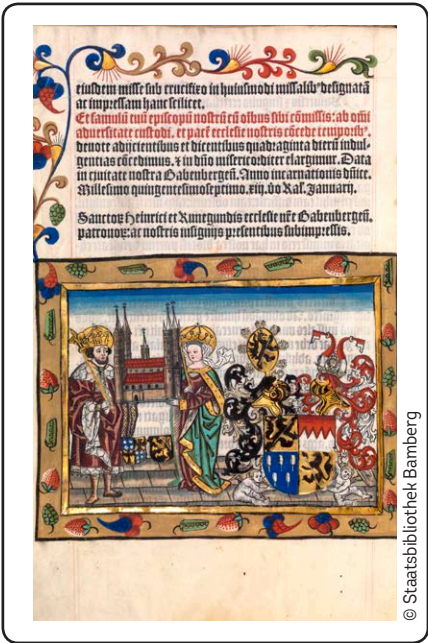 eiusdem misse sub crucifixo in huiusmodi missalibꝰ designatā
ac impressam hanc scilicet.
Et famulū tuū episcopū nostrū cū oībus sibi cōmissis: ab omī
adversitate custodi. et pacē ecclesie nostris cōcede temporibꝰ.
devote adijcientibus et dicentibus quadraginta dierū indul-
gentias cōcedimus. ⁊ in dn̄o misericorditer elargimur. Data
in civitate nostra Babenbergeñ. Anno incarnationis dn̄ice.
Millesimo quingentesimoseptimo. xiij. Kal. Januarij.
Sanctoꝝ Heinrici et Kunegundis ecclesie nr̄e Babenbergeñ.
patronoꝝ: ac nostris insignijs presentibus subimpressis.
© Staatsbibliothek Bamberg